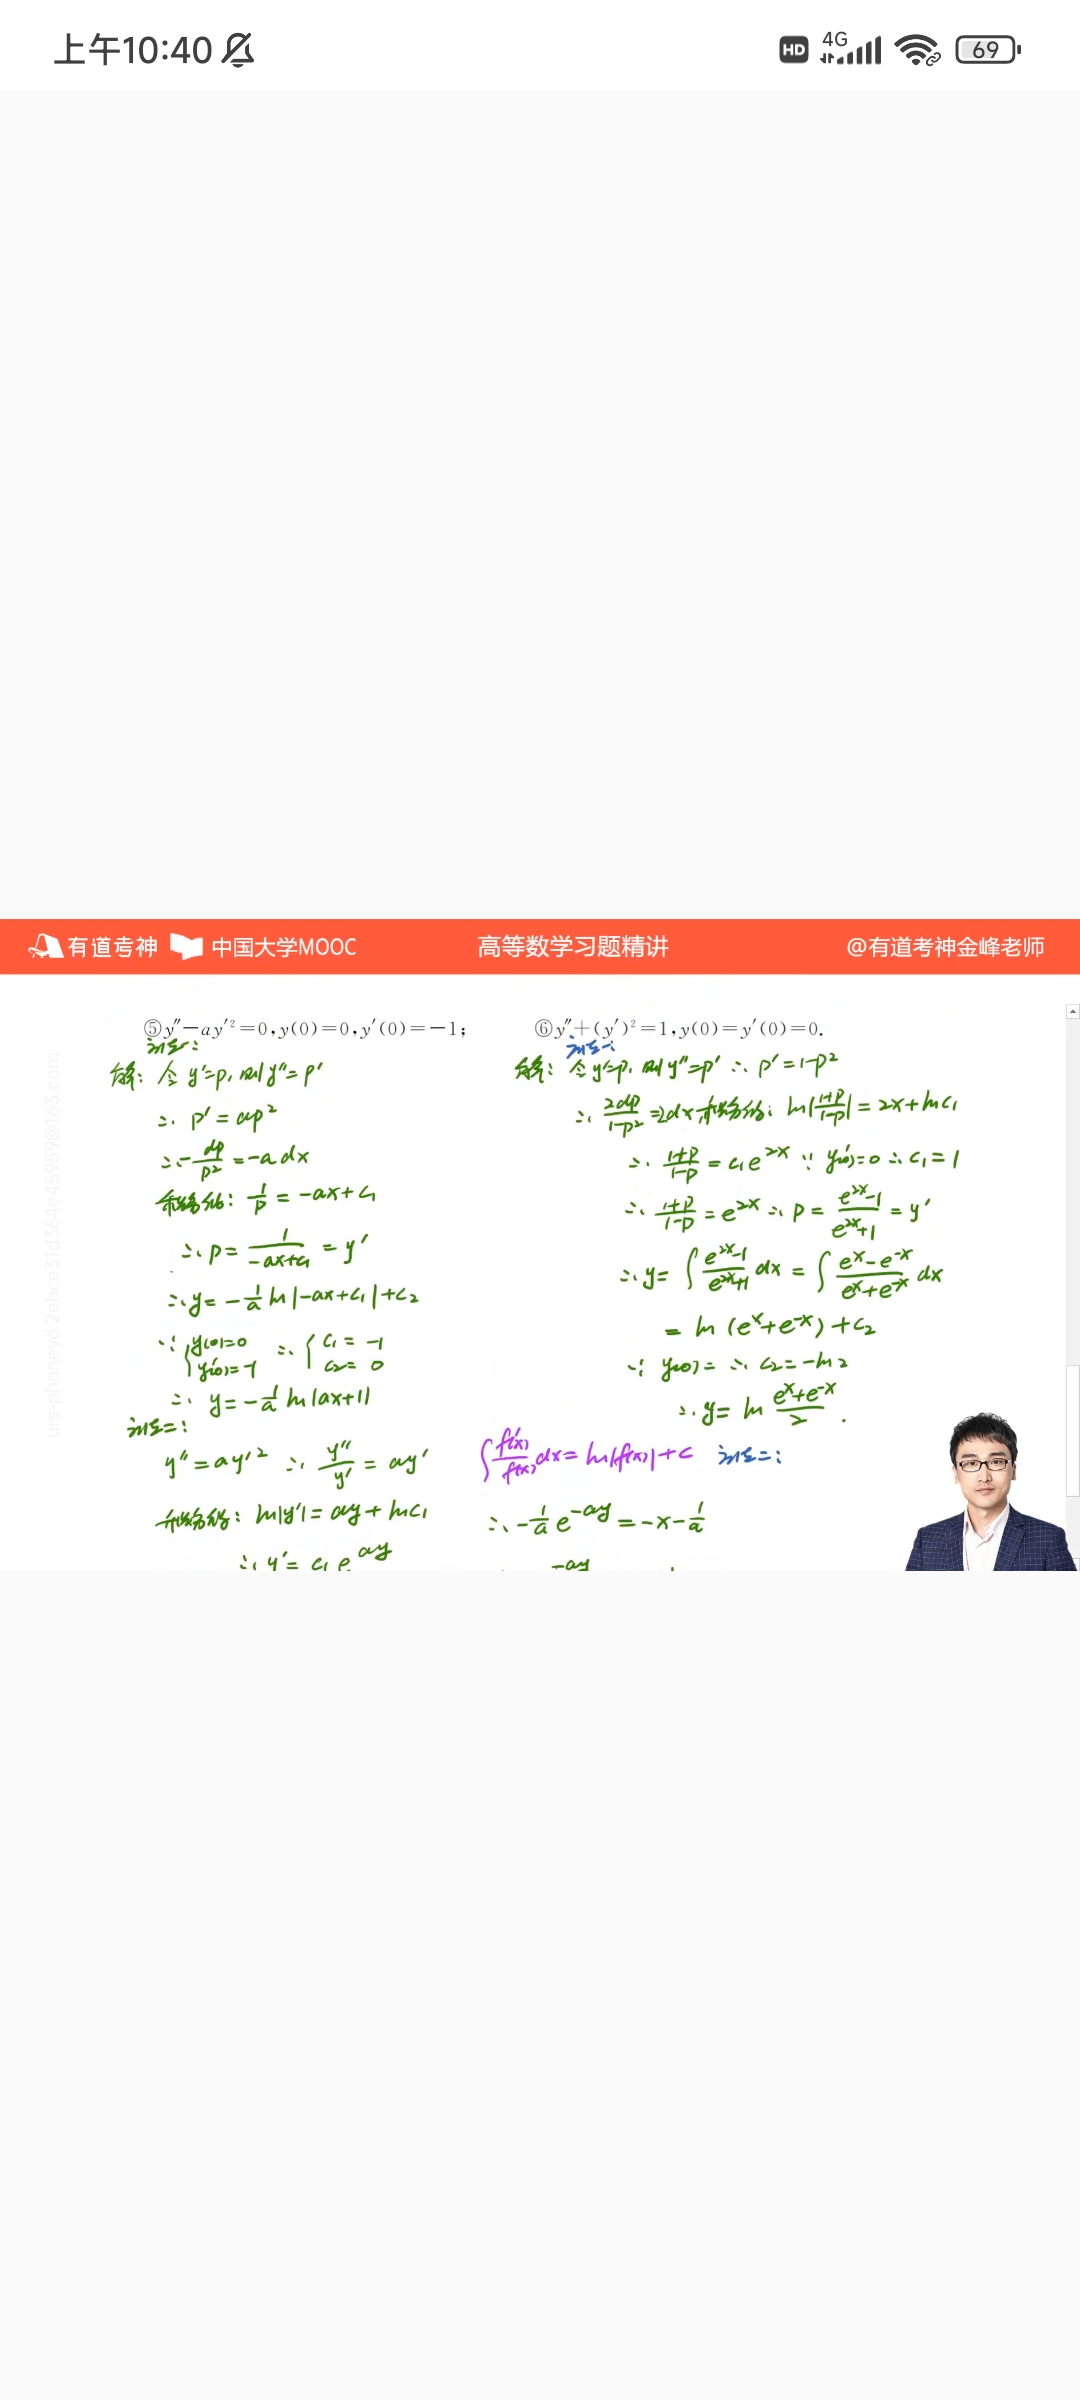 上午10:40
HD 4G 69
有道考神 中国大学MOOC 高等数学习题精讲 @有道考神金峰老师
⑤y″−ay′²=0,y(0)=0,y′(0)=−1;
法一:
解: 令y′=p, 则y″=p′
∴ p′=ap²
∴ -dp/p²=-adx
积分得: 1/p=-ax+c₁
∴ p=1/(-ax+c₁)=y′
∴ y=-1/a ln|-ax+c₁|+c₂
∵ {y(0)=0 y′(0)=-1 ∴ {c₁=-1 c₂=0
∴ y=-1/a ln|ax+1|
法二:
y″=ay′² ∴ y″/y′=ay′
积分得: ln|y′|=ay+lnc₁
∴ y′=c₁e^ay
⑥y″+(y′)²=1,y(0)=y′(0)=0.
法一:
解: 令y′=p, 则y″=p′ ∴ p′=1-p²
∴ 2dp/(1-p²)=2dx, 积分得: ln|(1+p)/(1-p)|=2x+lnc₁
∴ (1+p)/(1-p)=c₁e^2x ∵ y′(0)=0 ∴ c₁=1
∴ (1+p)/(1-p)=e^2x ∴ p=(e^2x-1)/(e^2x+1)=y′
∴ y=∫(e^2x-1)/(e^2x+1)dx=∫(e^x-e^-x)/(e^x+e^-x)dx
=ln(e^x+e^-x)+c₂
∵ y(0)= ∴ c₂=-ln2
∴ y=ln (e^x+e^-x)/2.
∫f′(x)/f(x)dx=ln|f(x)|+c 法二:
∴ -1/a e^-ay=-x-1/a
-ay
urs-phoneyd.2ebce31d364e45959@163.com